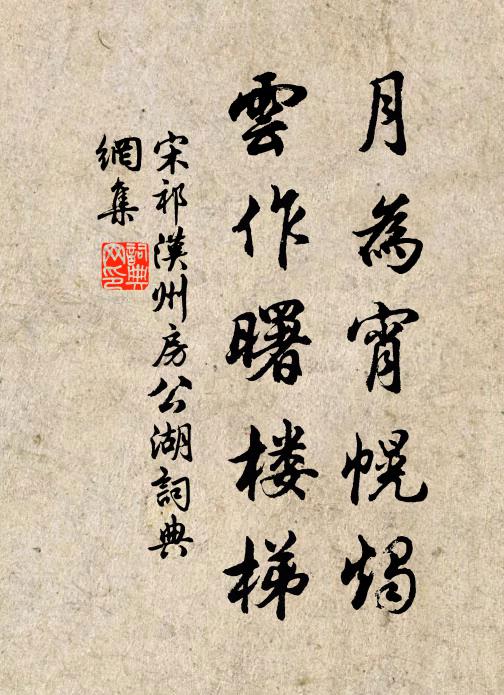 月為宵幌燭
雲作曙楼梯
宋祁漢州房公湖詞典
網集
詞典网印